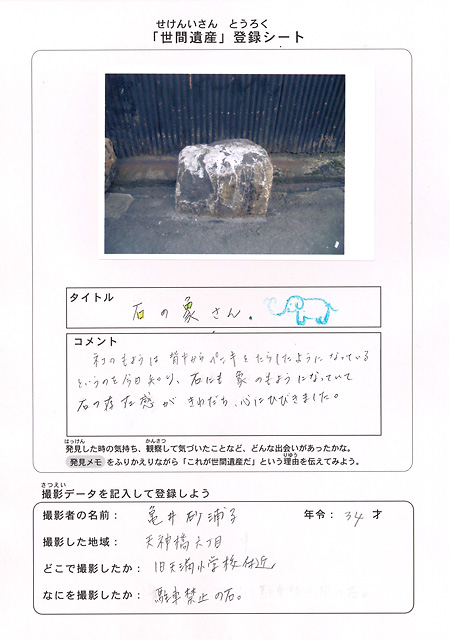 せけんいさん とうろく
「世間遺産」登録シート
タイトル
石の象さん。
コメント
ネコのもようは背中からペンキをたらしたようになっている
というのを今日知り、石にも象のもようになっていて
石の存在感がきわだち、心にひびきました。
はっけん かんさつ
発見した時の気持ち、観察して気づいたことなど、どんな出会いがあったかな。
りゆう
発見メモ をふりかえりながら「これが世間遺産だ」という理由を伝えてみよう。
さつえい
撮影データを記入して登録しよう
撮影者の名前： 亀井砂浦子 年令：34才
撮影した地域： 天神橋六丁目
どこで撮影したか： 旧天満小学校付近
なにを撮影したか： 駐車禁止の石。